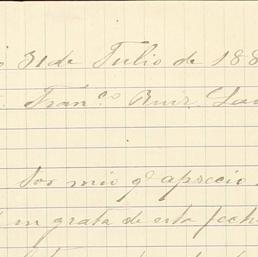 31 de Julio de 188
Fran.co Ruiz
Por mio q.e aprecio
grata de esta fech